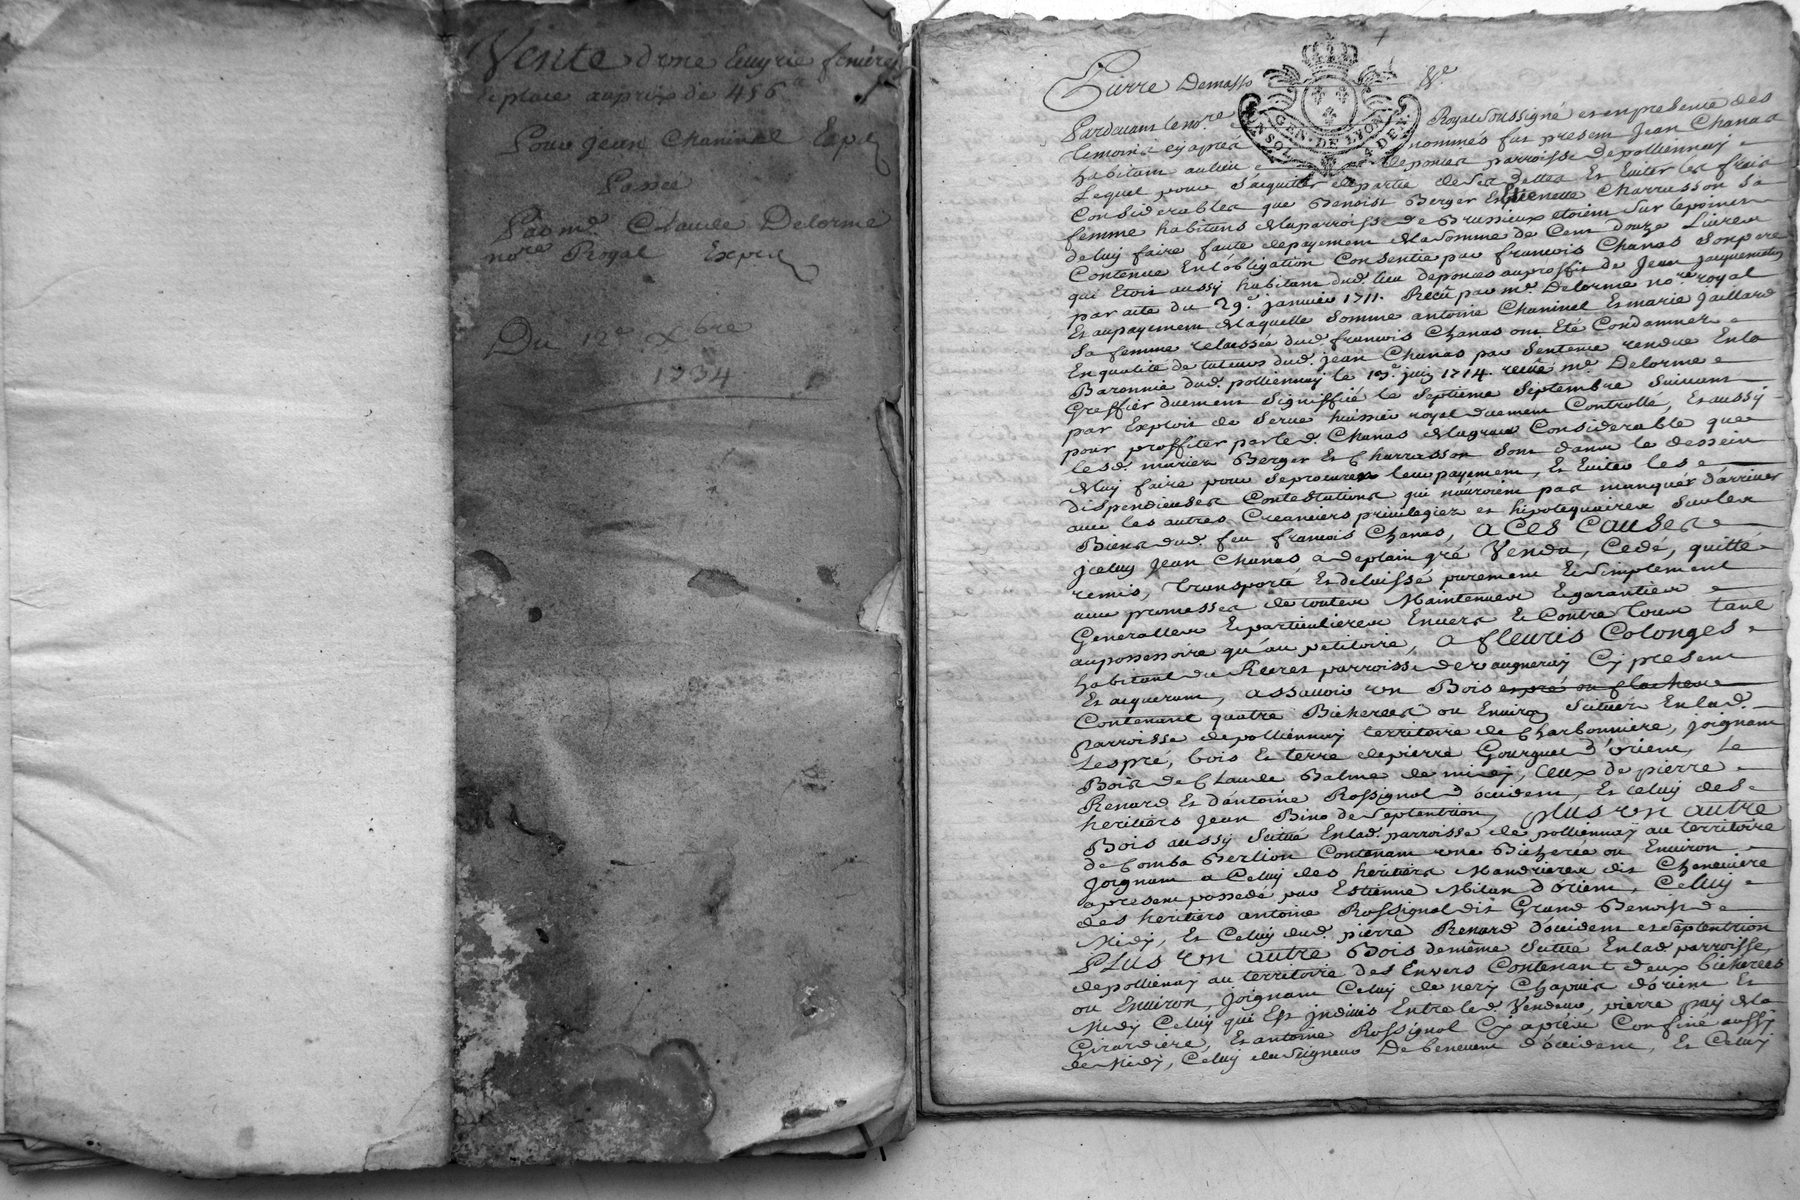 Vente d'une Ecuyrie feniere
et place au prix de 456ᵗᵗ
Pour Jean Chaninel Exp.
Passée
Par mᵉ. Claude Delorme
noʳᵉ Royal Expᵉ
Du 12ᵉ Xbre
1734
Pierre Demasso
GEN. DE LYON
Pardevant le noʳᵉ Royal Soussigné et en presence des
temoins cy apres nommés fut present Jean Chanas
habitant au lieu de ponces parroisse de pollionnay
Lequel pour s'acquiter de partie de ses dettes Et Eviter les frais
Considerables que Benoist Berger Et Pienette Charrasson Sa
femme habitans de la parroisse de Brussieux etoient Sur le point
de luy faire faute de payement de la Somme de Cent douze Livres
Contenue En l'obligation Consentie par françois Chanas Son pere
qui Etoit aussy habitant dud. lieu de ponces au proffit de Jean Jacquemetton
par acte du 29ᵉ. janvier 1711. Reçû par mᵉ Delorme noʳᵉ royal
Et au payement de laquelle Somme antoine Chaninel Et marie Jaillard
Sa femme relaissée dud. francois Chanas ont Eté Condamnés
En qualité de tuteurs dud. jean Chanas par Sentence rendue En la
Baronnie dud. pollionnay le 19ᵉ. juin 1714. reçüe mᵉ Delorme
Greffier düement Signiffié le Septieme Septembre Suivant
par Exploit de Serve huissier royal düement Controllé, Et aussy
pour proffiter par led. Chanas de la grace Considerable que
lesd. mariés Berger Et Charrasson Sont dans le dessein
de luy faire pour Se procurer leur payement, Et Eviter les
dispendieuses Contestations qui n'auroient pas manquer d'arriver
avec les autres Creanciers privilegiez et hipotequaires Sur les
Biens dud. feu francois Chanas, a Ces Causes
jceluy Jean Chanas a de plain gré Vendu, Cedé, quitté
remis, transporté Et delaissé purement Et Simplement
avec promesses de toutes Maintenues Et garanties
Generalles Et particulieres Envers Et Contre Tous tant
au possessoire qu'au petitoire, a fleuris Colonges
habitant de Recret parroisse de vaugneray Cy present
Et acquerant, assavoir un Bois
Contenant quatre Bicherées ou Environ Scitués En lad.
parroisse de pollionnay territoire de Charbonniere, joignant
Les pré, bois Et terre de pierre Gourguet d'orient, Le
Bois de Claude Balme de midy, Ceux de pierre
Renard Et d'antoine Rossignol d'occident, Et Celuy des
heritiers Jean Bino de Septentrion, plus un autre
Bois aussy Scitué En lad. parroisse de pollionnay au territoire
de Comba Berlion Contenant une Bicherée ou Environ
Joignant a Celuy des heritiers Mandrieres dit Cheneviere
a present possedé par Estienne Milan d'orient, Celuy
des heritiers antoine Rossignol dit Grand Benoist de
Midy, Et Celuy dud. pierre Renard d'occident et Septentrion
Plus un autre Bois de même Scitué En lad parroisse
de pollionay au territoire des Envers Contenant deux bicherées
ou Environ, joignant Celuy de nery Chapuis d'orient Et
Midy Celuy qui Est Jndivis Entre led. Vendeur, pierre pay de la
Girardiere, Et antoine Rossignol Cy après Confiné aussy
de Midy, Celuy du Seigneur De benevent d'occident, Et Celuy